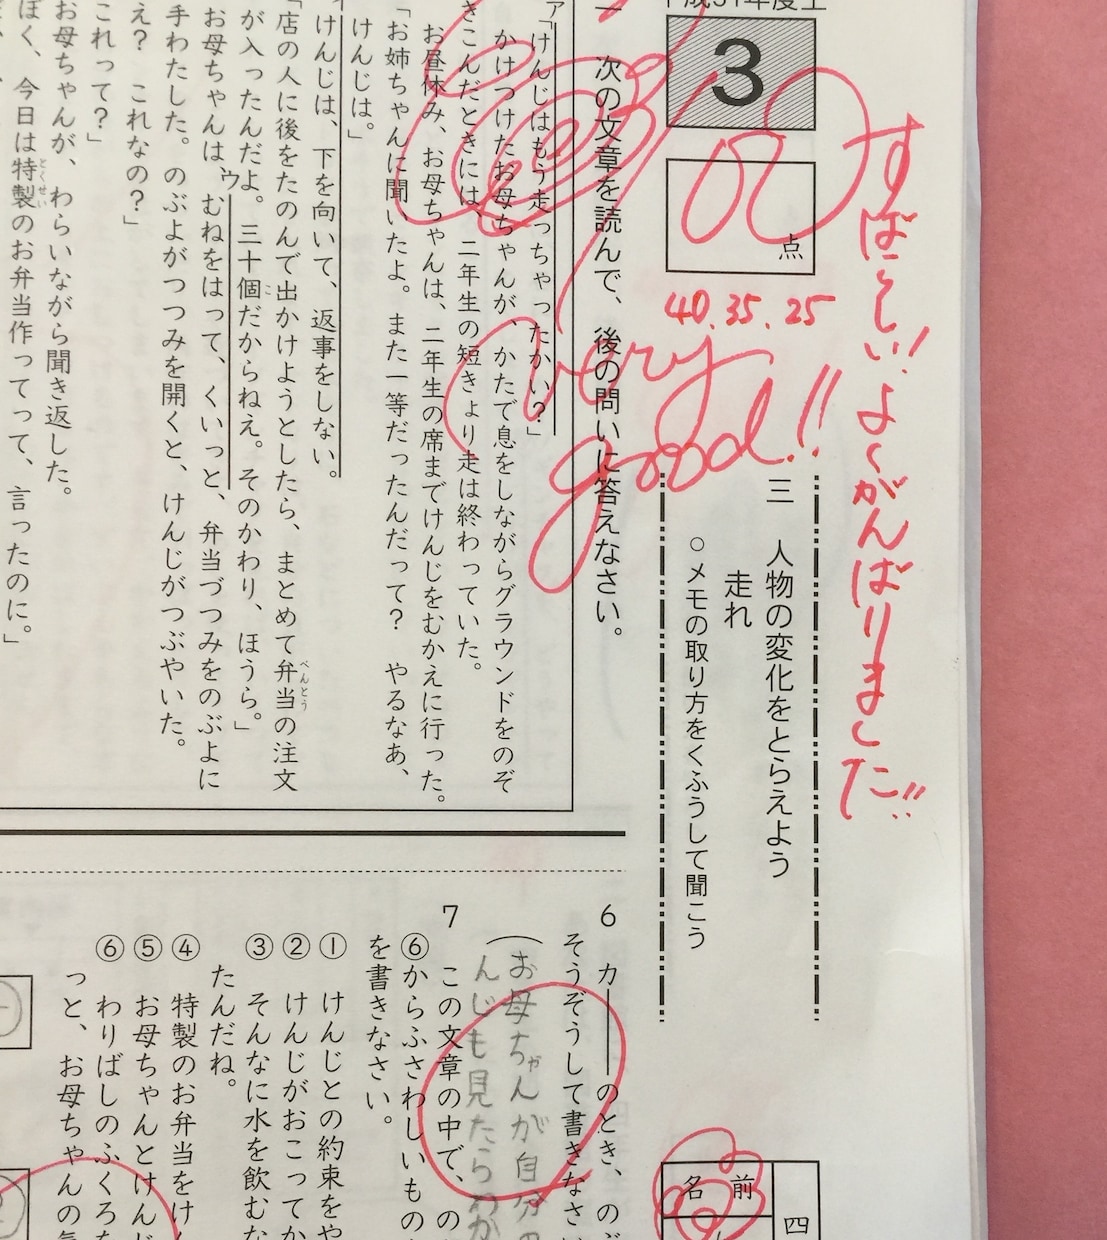 3
点
40.35.25
すばらしい!よくがんばりました!!
very
good!!
三 人物の変化をとらえよう
走れ
○メモの取り方をくふうして聞こう
一 次の文章を読んで、後の問いに答えなさい。
ア「けんじはもう走っちゃったかい?」
かけつけたお母ちゃんが、かたで息をしながらグラウンドをのぞ
きこんだときには、二年生の短きょり走は終わっていた。
お昼休み、お母ちゃんは、二年生の席までけんじをむかえに行った。
「お姉ちゃんに聞いたよ。また一等だったんだって? やるなあ、
けんじは。」
けんじは、下を向いて、返事をしない。
「店の人に後をたのんで出かけようとしたら、まとめて弁当の注文
べんとう
が入ったんだよ。三十個だからねえ。そのかわり、ほうら。」
こ
お母ちゃんは ウむねをはって、くいっと、弁当づつみをのぶよに
手わたした。のぶよがつつみを開くと、けんじがつぶやいた。
え? これなの?」
これって?」
お母ちゃんが、わらいながら聞き返した。
ぼく、今日は特製のお弁当作ってって、言ったのに。」
とくせい
6 カ――のとき、のぶ
そうぞうして書きなさい
(お母ちゃんが自分の
んじも見たらわか
7 この文章の中で、の
⑥からふさわしいもの
を書きなさい。
① けんじとの約束をや
② けんじがおこってか
③ そんなに水を飲むな
たんだね。
④ 特製のお弁当をけん
⑤ お母ちゃんとけんじ
⑥ わりばしのふくろを
っと、お母ちゃんの気
名前
四